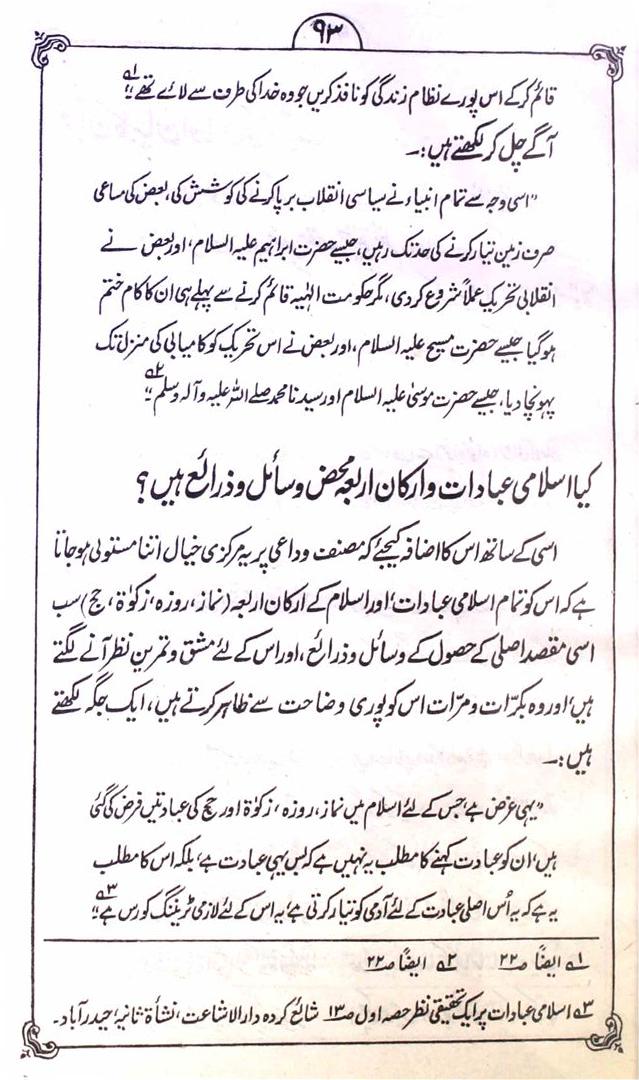 ۹۳
قائم کرکے اس پورے نظام زندگی کو نافذ کریں جو وہ خدا کی طرف سے لائے تھے ؂۱"
آگے چل کر لکھتے ہیں:ـ
"اسی وجہ سے تمام انبیاء نے سیاسی انقلاب برپا کرنے کی کوشش کی، بعض کی مساعی
صرف زمین تیار کرنے کی حد تک رہیں، جیسے حضرت ابراہیم علیہ السلام، اور بعض نے
انقلابی تحریک عملاً شروع کردی، مگر حکومت الٰہیہ قائم کرنے سے پہلے ہی ان کا کام ختم
ہوگیا جیسے حضرت مسیح علیہ السلام، اور بعض نے اس تحریک کو کامیابی کی منزل تک
پہونچادیا، جیسے حضرت موسیٰ علیہ السلام اور سیدنا محمد صلے اللہ علیہ وآلہ وسلم ؂۲"
کیا اسلامی عبادات و ارکان اربعہ محض وسائل و ذرائع ہیں؟
اسی کے ساتھ اس کا اضافہ کیجئے کہ مصنف و داعی پر یہ مرکزی خیال اتنا مستولی ہوجاتا
ہے کہ اس کو تمام اسلامی عبادات، اور اسلام کے ارکان اربعہ (نماز، روزہ، زکوٰۃ، حج) سب
اسی مقصد اصلی کے حصول کے وسائل و ذرائع، اور اس کے لئے مشق و تمرین نظر آنے لگتے
ہیں، اور وہ بکرّات و مرّات اس کو پوری وضاحت سے ظاہر کرتے ہیں، ایک جگہ لکھتے
ہیں:ـ
"یہی غرض ہے، جس کے لئے اسلام میں نماز، روزہ، زکوٰۃ اور حج کی عبادتیں فرض کی گئی
ہیں، ان کو عبادت کہنے کا مطلب یہ نہیں ہے کہ بس یہی عبادت ہے، بلکہ اس کا مطلب
یہ ہے کہ یہ اُس اصلی عبادت کے لئے آدمی کو تیار کرتی ہے، یہ اس کے لئے لازمی ٹریننگ کورس ہے ؂۳"
؂۱ ایضًا ص۲۲ ؂۲ ایضًا ص۲۲
؂۳ اسلامی عبادات پر ایک تحقیقی نظر حصہ اول ص۱۳ شائع کردہ دارالاشاعت، نشأۃ ثانیہ، حیدرآباد۔